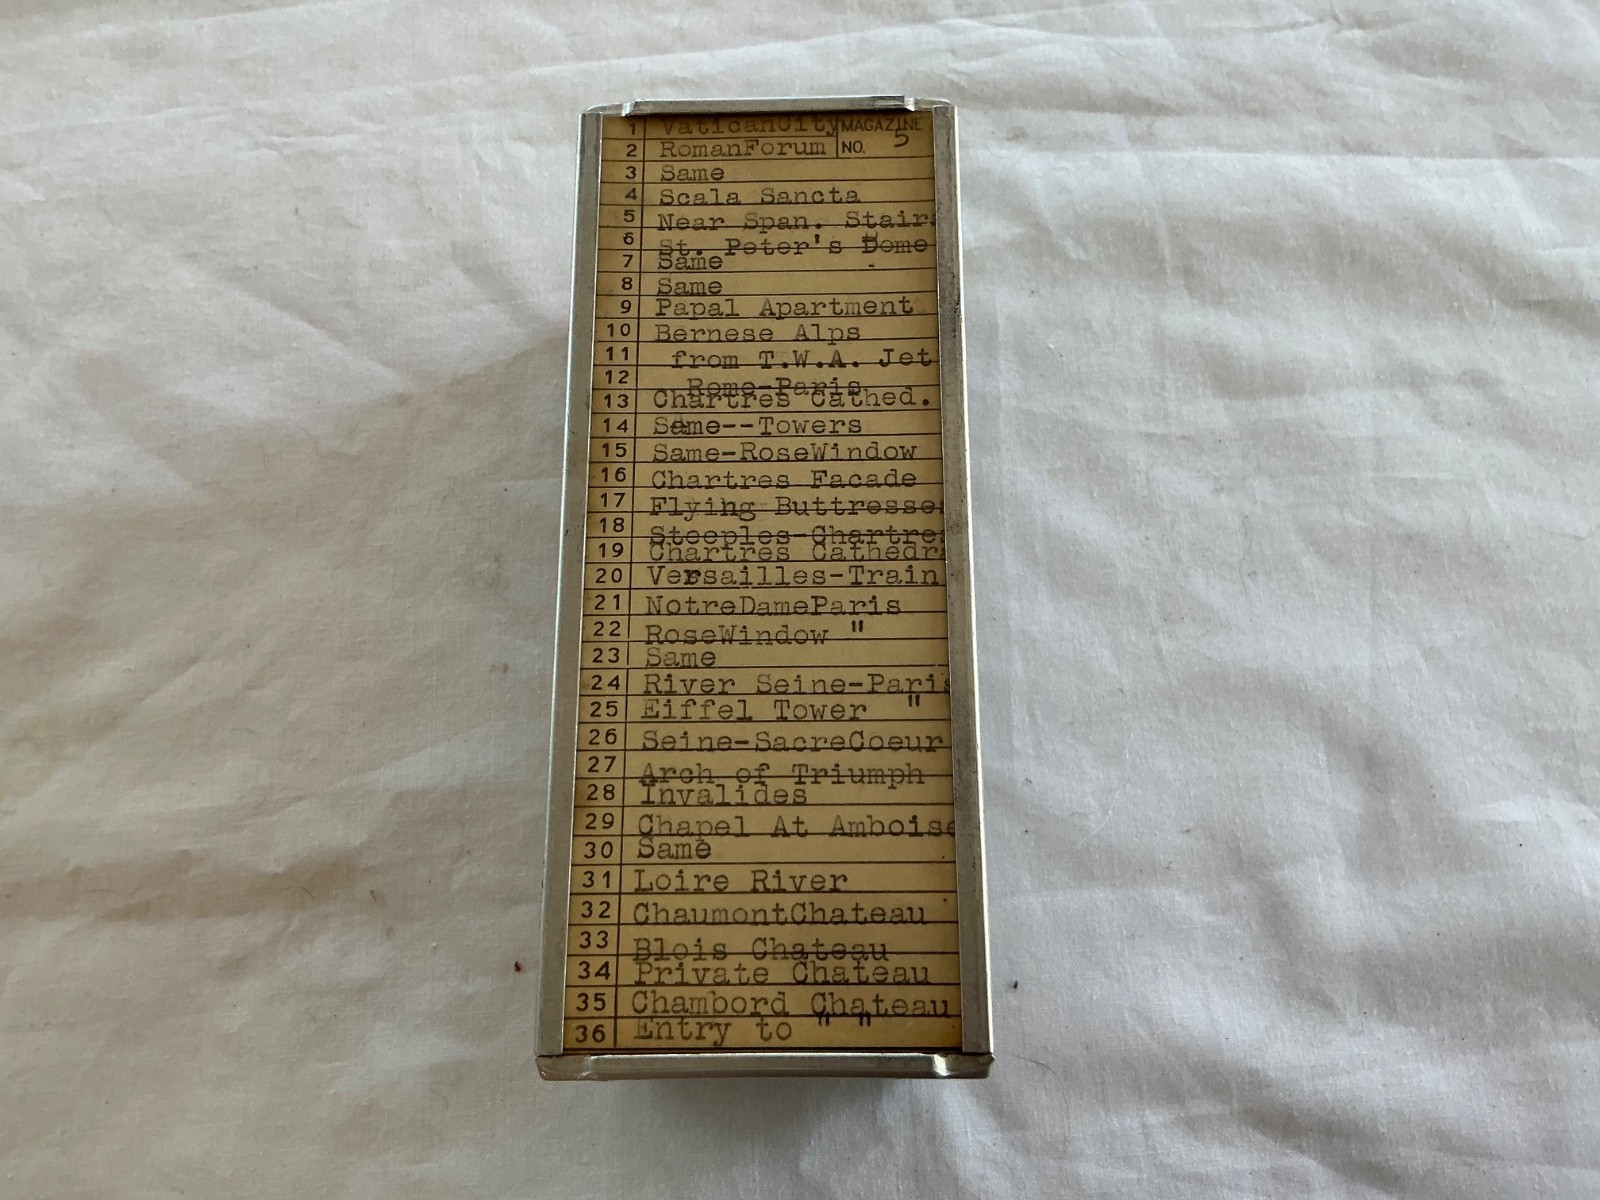 1 VaticanCity MAGAZINE
2 RomanForum NO. 5
3 Same
4 Scala Sancta
5 Near Span. Stairs
6 St. Peter's Dome
7 Same -
8 Same
9 Papal Apartment
10 Bernese Alps
11 from T.W.A. Jet
12 Rome-Paris
13 Chartres Cathed.
14 Same--Towers
15 Same-RoseWindow
16 Chartres Facade
17 Flying Buttresses
18 Steeples-Chartre
19 Chartres Cathedra
20 Versailles-Train
21 NotreDameParis
22 RoseWindow "
23 Same
24 River Seine-Paris
25 Eiffel Tower "
26 Seine-SacreCoeur
27 Arch of Triumph
28 Invalides
29 Chapel At Amboise
30 Same
31 Loire River
32 ChaumontChateau
33 Blois Chateau
34 Private Chateau
35 Chambord Chateau
36 Entry to " "